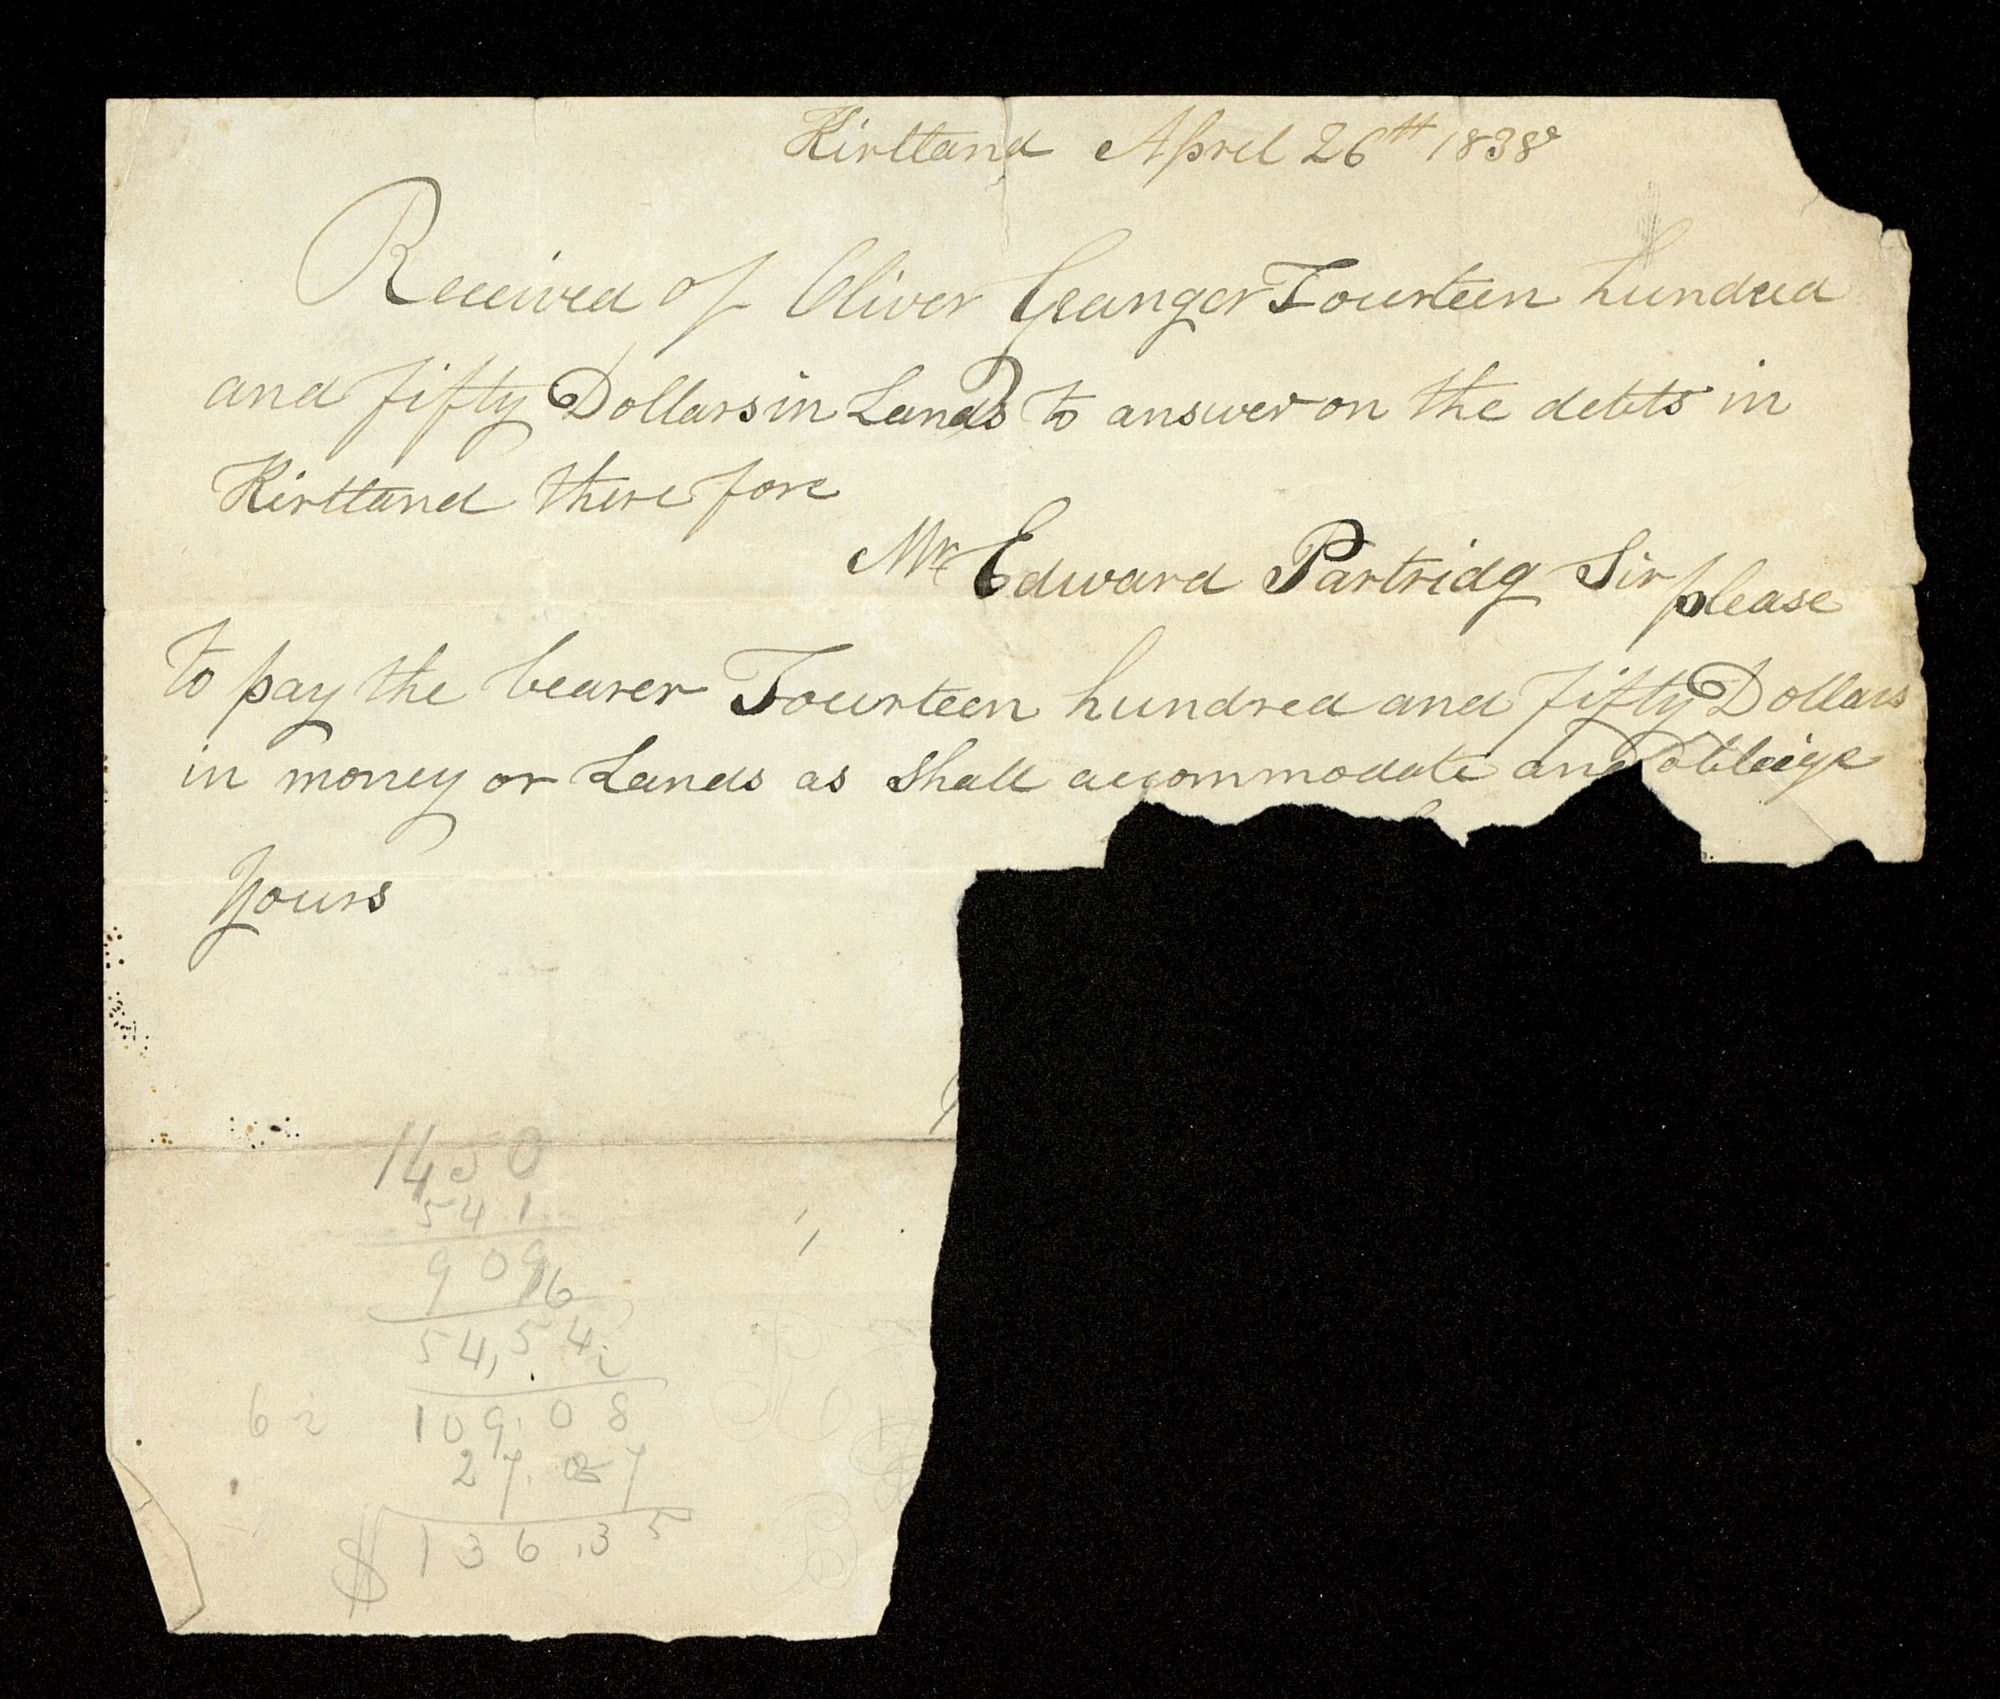 Kirtland April 26th 1838
Received of Oliver Granger Fourteen hundred
and fifty Dollars in Lands to answer on the debts in
Kirtland there fore
Mr Edward Partridg Sir please
to pay the bearer Fourteen hundred and fifty Dollars
in money or Lands as shall accommodate and obleige
Yours
1450
541
909
6
54,54
2
62 109.08
27.27
$136.35